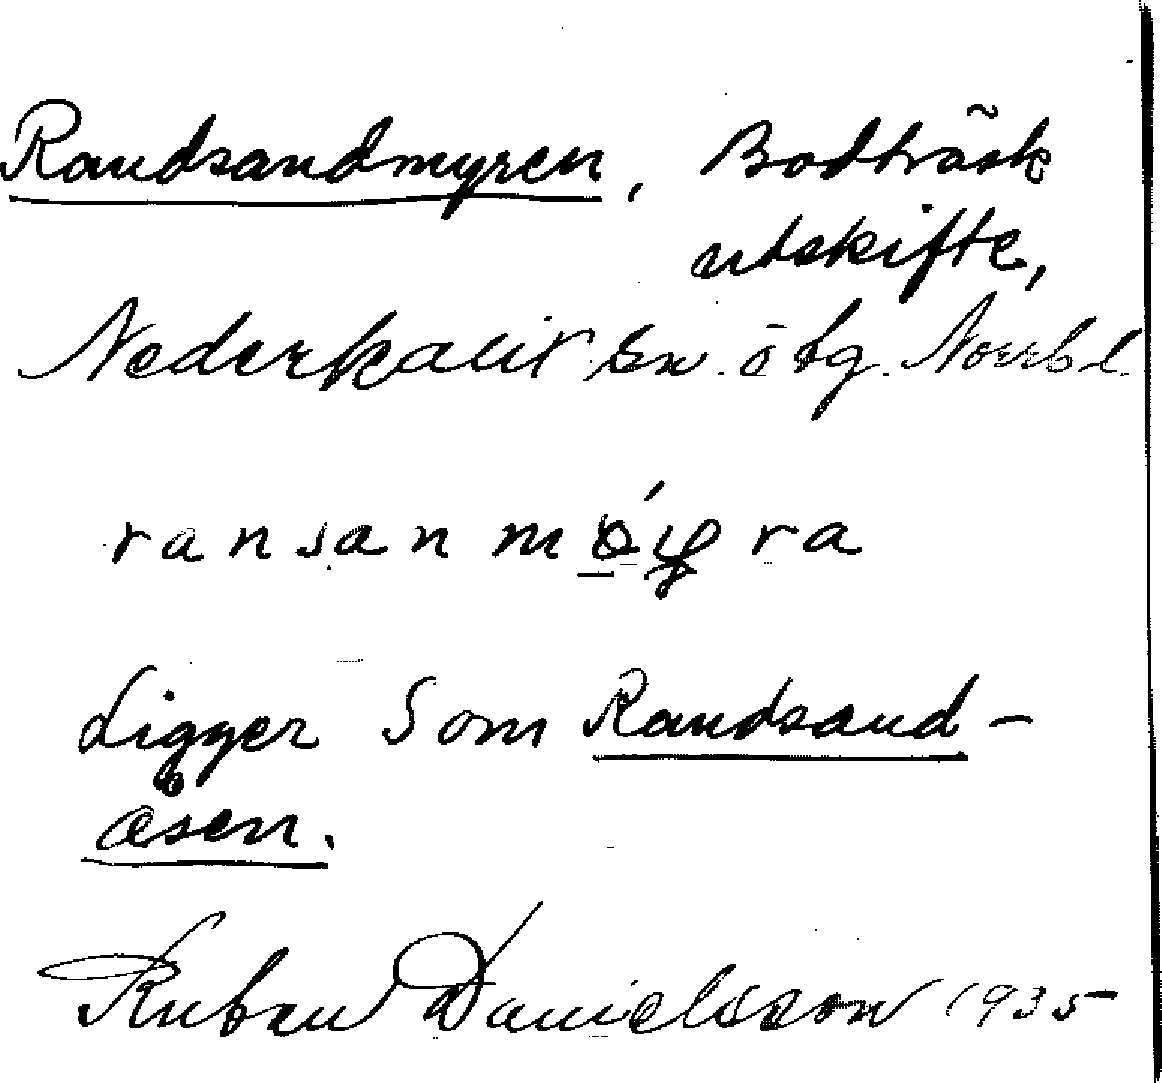 Randsandmyren, Bodträsk
utskifte,
Nederkalix sn. ö tg. Norrb l.
ransan
Ligger som Randsand-
åsen.
Ruben Danielsson 1935